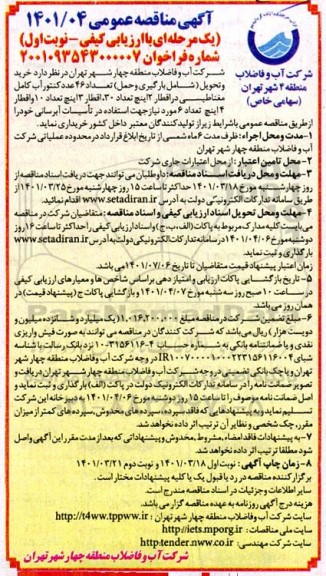 آگهی مناقصه عمومی ۱۴۰۱/۰۴
(یک مرحله ای با ارزیابی کیفی – نوبت اول)
شماره فراخوان ۲۰۰۱۰۹۳۵۴۳۰۰۰۰۰۷
شرکت آب و فاضلاب
منطقه ۴ شهر تهران
(سهامی خاص)
شرکت آب و فاضلاب منطقه چهار شهر تهران در نظر دارد خرید
و تحویل (شامل بارگیری و حمل) تعداد ۴۶ عدد کنتور آب کامل
مغناطیسی در اقطار ۲ اینچ تعداد ۳۰، اقطار ۳ اینچ تعداد ۱۰ و اقطار
۴ اینچ تعداد ۶ مورد نیاز جهت استفاده در تأسیسات آبرسانی خود را
از طریق مناقصه عمومی با شرایط زیر از تولیدکنندگان معتبر داخل کشور خریداری نماید.
۱- مدت و محل اجراء: ظرف مدت ۶ ماه شمسی از تاریخ ابلاغ قرارداد در محدوده عملیاتی شرکت
آب و فاضلاب منطقه چهار شهر تهران
۲- محل تامین اعتبار: از محل اعتبارات جاری شرکت
۳- مهلت و محل دریافت اسناد مناقصه: داوطلبان می توانند جهت دریافت اسناد مناقصه از
روز چهارشنبه مورخ ۱۴۰۱/۰۳/۱۸ حداکثر تا ساعت ۱۵ روز چهارشنبه مورخ ۱۴۰۱/۰۳/۲۵ از
طریق سامانه تدارکات الکترونیکی دولت به آدرس www.setadiran.ir اقدام نمائید.
۴- مهلت و محل تحویل اسناد ارزیابی کیفی و اسناد مناقصه: متقاضیان شرکت در مناقصه
می بایست کلیه مدارک مربوط به پاکات (الف، ب، ج) و اسناد ارزیابی کیفی را حداکثر تا ساعت ۱۶ روز
دوشنبه مورخ ۱۴۰۱/۰۴/۰۶ در سامانه تدارکات الکترونیکی دولت به آدرس www.setadiran.ir
بارگذاری و ثبت نماید.
زمان اعتبار پیشنهاد قیمت متقاضیان تا تاریخ ۱۴۰۱/۰۷/۰۶ می باشد.
۵- تاریخ بازگشایی پاکات ارزیابی و امتیازدهی براساس شاخص ها و معیارهای ارزیابی کیفی
در ساعت ۱۰ صبح روز سه شنبه مورخ ۱۴۰۱/۰۴/۰۷ و بازگشایی پاکات ج (پیشنهاد قیمت) در
همان روز می باشد.
۶- مبلغ تضمین شرکت در مناقصه مبلغ ۱,۰۱۶,۲۰۰,۰۰۰ (یک میلیارد و شانزده میلیون و
دویست هزار) ریال می باشد که شرکت کنندگان در مناقصه می توانند به صورت فیش واریزی
نقدی و یا ضمانتنامه بانکی به شماره حساب ۴-۳۱۵۶۱۱۶-۱۰ نزد بانک رسالت با شناسه
شبای IR۱۰۰۷۰۰۰۰۱۰۰۰۲۲۳۱۵۶۱۱۶۰۰۴ در وجه شرکت آب و فاضلاب منطقه چهار شهر
تهران و یا چک بانکی تضمینی در وجه شرکت آب و فاضلاب منطقه چهار شهر تهران دریافت و
تصویر ضمانت نامه را در سامانه تدارکات الکترونیک دولت در پاکت (الف) بارگذاری و ثبت نماید و
اصل ضمانت نامه موصوف را تا ساعت ۱۵ روز دوشنبه مورخ ۱۴۰۱/۰۴/۰۶ به دبیرخانه این شرکت
تسلیم نماید و به پیشنهادهایی که فاقد سپرده، سپرده های مخدوش، سپرده های کمتر از میزان
مقرر، چک شخصی و نظایر آن ترتیب اثر داده نخواهد شد.
۷- به پیشنهادات فاقد امضاء، مشروط، مخدوش و پیشنهاداتی که بعد از مدت مقرر این آگهی واصل
شود مطلقا ترتیب اثر داده نخواهد شد.
۸- زمان چاپ آگهی: نوبت اول ۱۴۰۱/۰۳/۱۸ و نوبت دوم ۱۴۰۱/۰۳/۲۱
برگزار کننده مناقصه در رد یا قبول یک یا کلیه پیشنهادات مختار است.
سایر اطلاعات و جزئیات در اسناد مناقصه مندرج است.
هزینه درج آگهی روزنامه به عهده مناقصه گزار می باشد.
سایت شرکت آب و فاضلاب منطقه چهار شهر تهران: http://t4ww.tppww.ir
سایت ملی مناقصات: http://iets.mporg.ir
سایت شرکت مهندسی: http:tender.nww.co.ir
شرکت آب و فاضلاب منطقه چهار شهر تهران